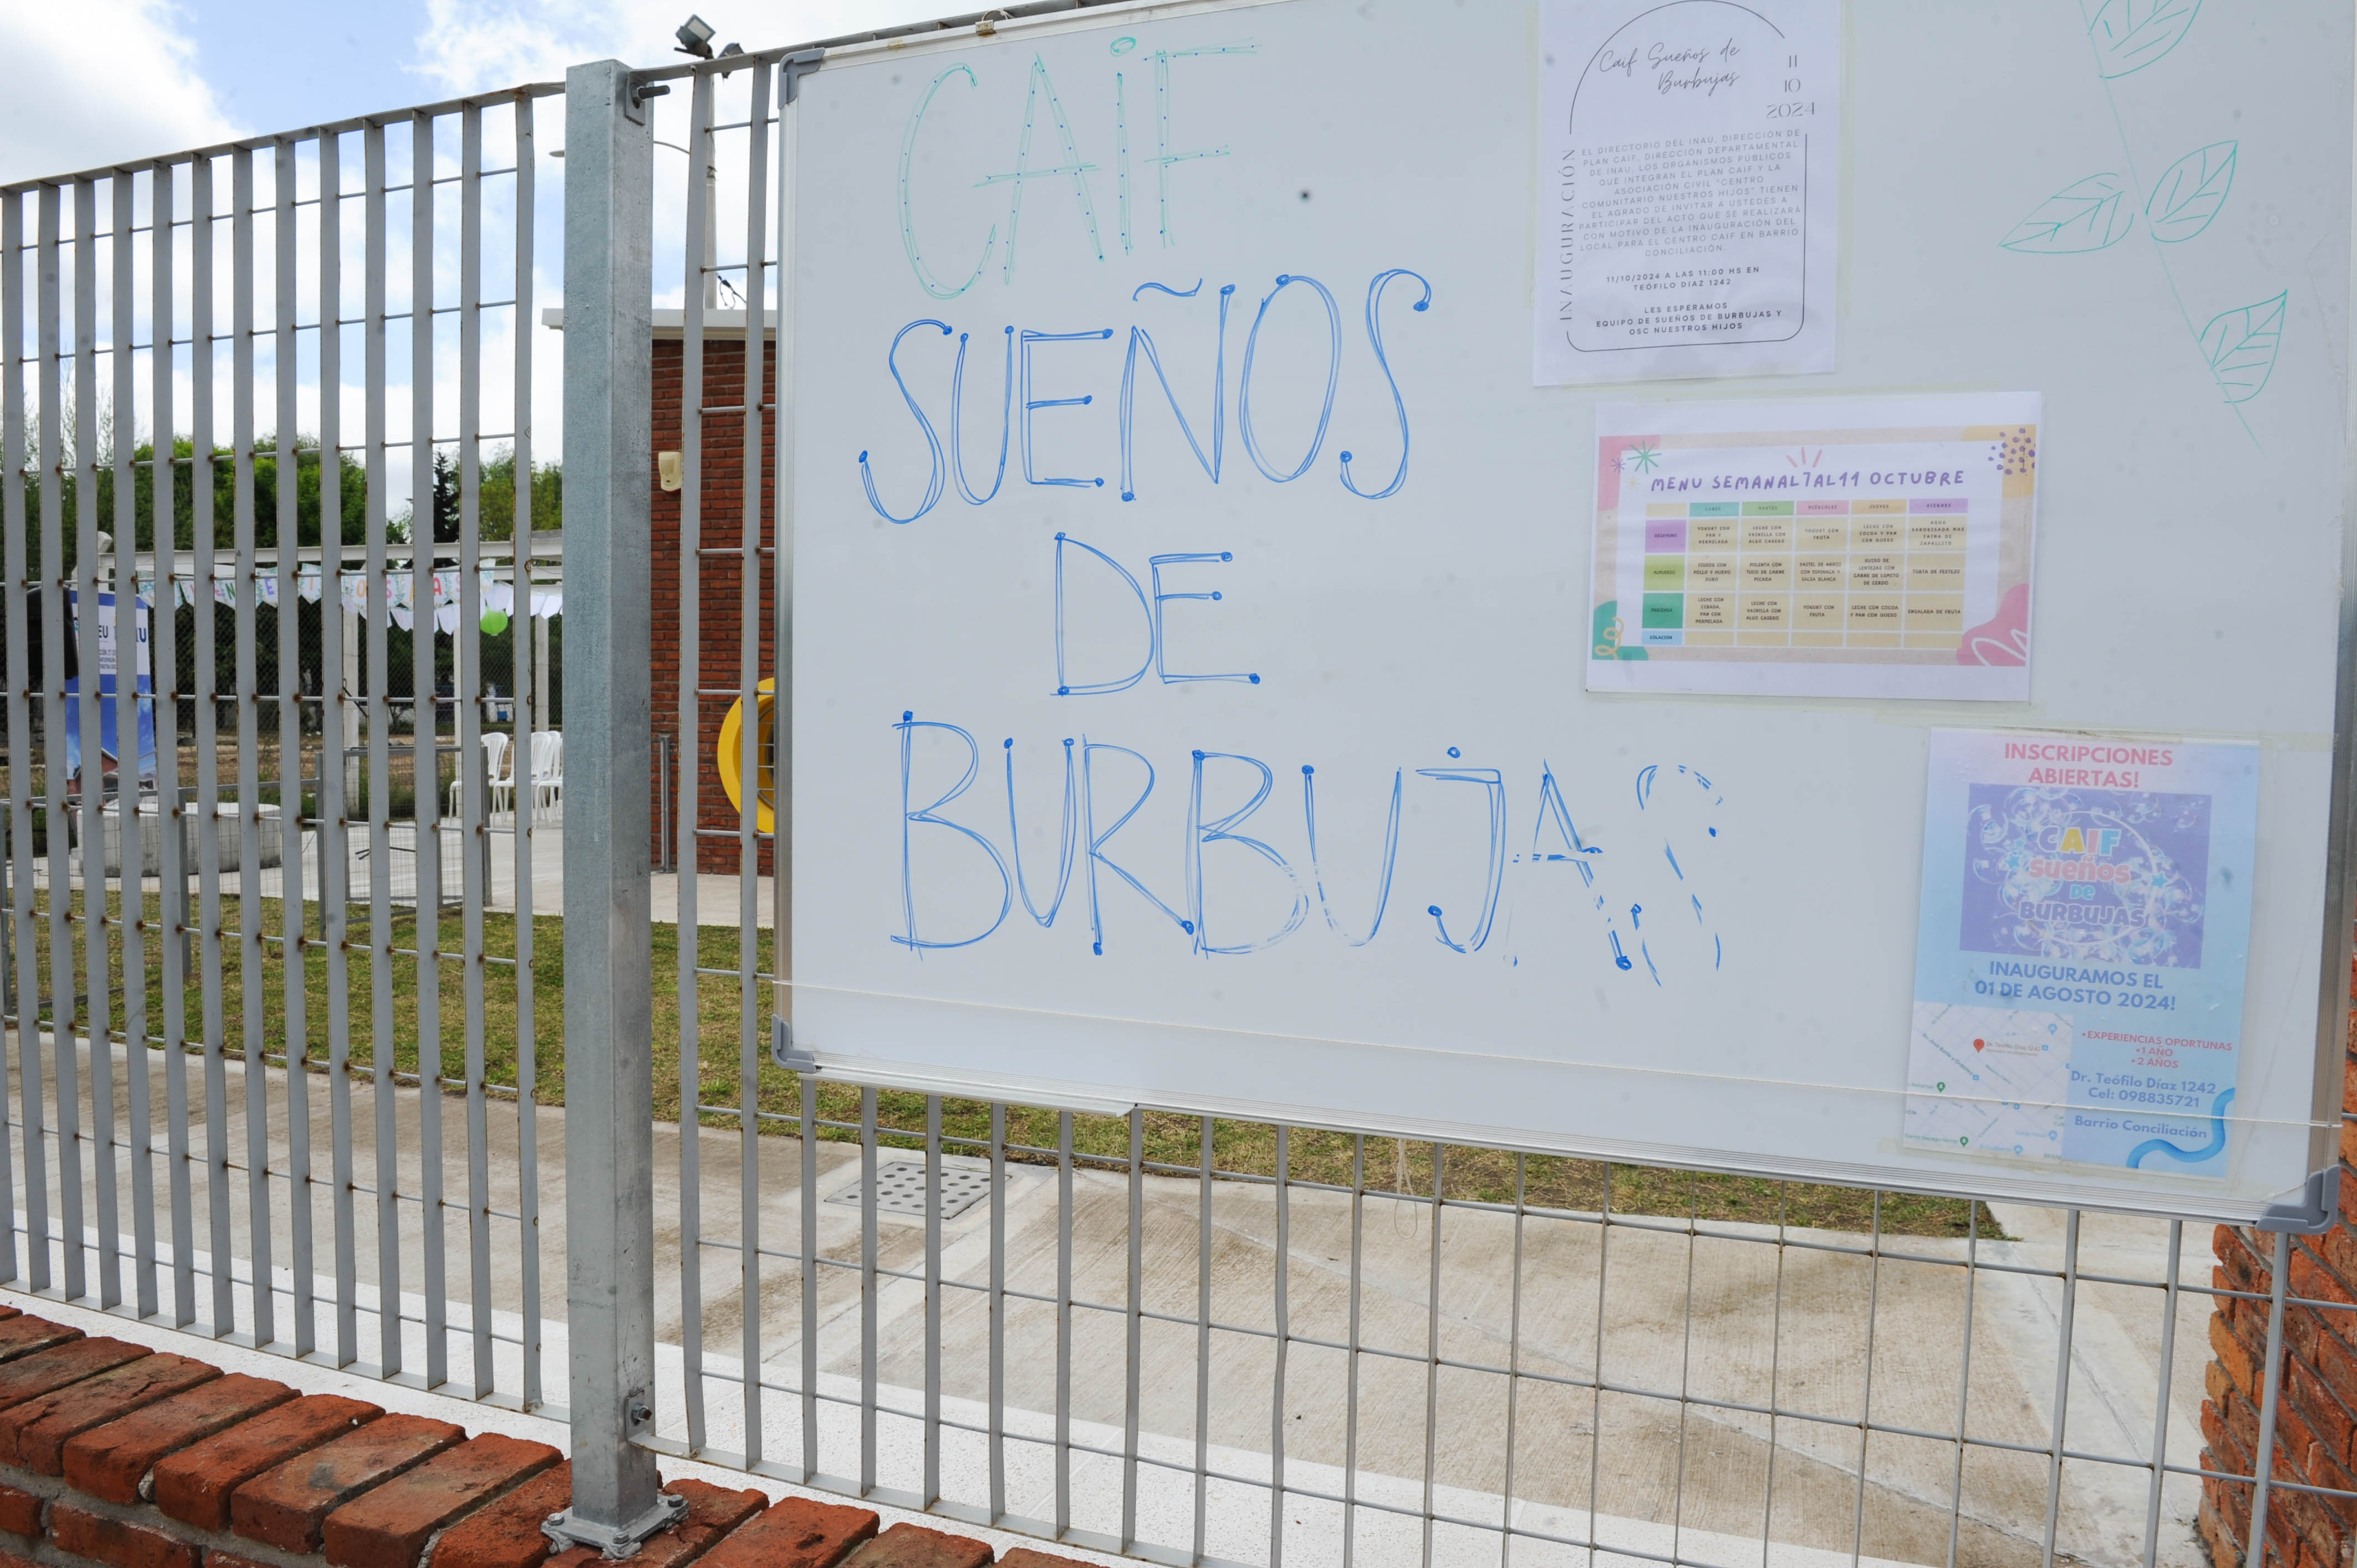 CAiF
SUEÑOS
DE
BURBUJAS
Caif Sueños de
Burbujas
11
10
2024
INAUGURACIÓN
EL DIRECTORIO DEL INAU, DIRECCIÓN DE
PLAN CAIF, DIRECCIÓN DEPARTAMENTAL
DE INAU, LOS ORGANISMOS PÚBLICOS
QUE INTEGRAN EL PLAN CAIF Y LA
ASOCIACIÓN CIVIL "CENTRO
COMUNITARIO NUESTROS HIJOS" TIENEN
EL AGRADO DE INVITAR A USTEDES A
PARTICIPAR DEL ACTO QUE SE REALIZARÁ
CON MOTIVO DE LA INAUGURACIÓN DEL
LOCAL PARA EL CENTRO CAIF EN BARRIO
CONCILIACIÓN.
11/10/2024 A LAS 11:00 HS EN
TEÓFILO DIAZ 1242
LES ESPERAMOS
EQUIPO DE SUEÑOS DE BURBUJAS Y
OSC NUESTROS HIJOS
MENU SEMANAL 7 AL 11 OCTUBRE
LUNES MARTES MIÉRCOLES JUEVES VIERNES
DESAYUNO
YOGURT CON
PAN Y
MERMELADA
LECHE CON
VAINILLA CON
ALGO CASERO
YOGURT CON
FRUTA
LECHE CON
COCOA Y PAN
CON QUESO
AGUA
SABORIZADA MAS
TATRA DE
ZAPALLITO
ALMUERZO
FIDEOS CON
POLLO Y HUEVO
DURO
POLENTA CON
TUCO DE CARNE
PICADA
PASTEL DE ARROZ
CON ESPINACA Y
SALSA BLANCA
GUISO DE
LENTEJAS CON
CARNE DE LOMITO
DE CERDO
TORTA DE FESTEJO
MERIENDA
LECHE CON
COCOA,
PAN CON
MERMELADA
LECHE CON
VAINILLA CON
ALGO CASERO
YOGURT CON
FRUTA
LECHE CON COCOA
Y PAN CON QUESO
ENSALADA DE FRUTA
COLACIÓN
INSCRIPCIONES
ABIERTAS!
CAIF
sueños
DE
BURBUJAS
INAUGURAMOS EL
01 DE AGOSTO 2024!
•EXPERIENCIAS OPORTUNAS
•1 AÑO
•2 AÑOS
Dr. Teófilo Díaz 1242
Cel: 098835721
Barrio Conciliación